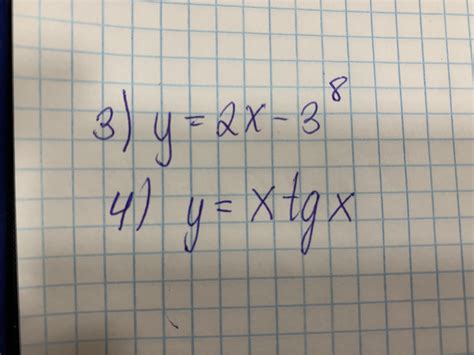 3) y = 2x - 3⁸
4) y = x tg x